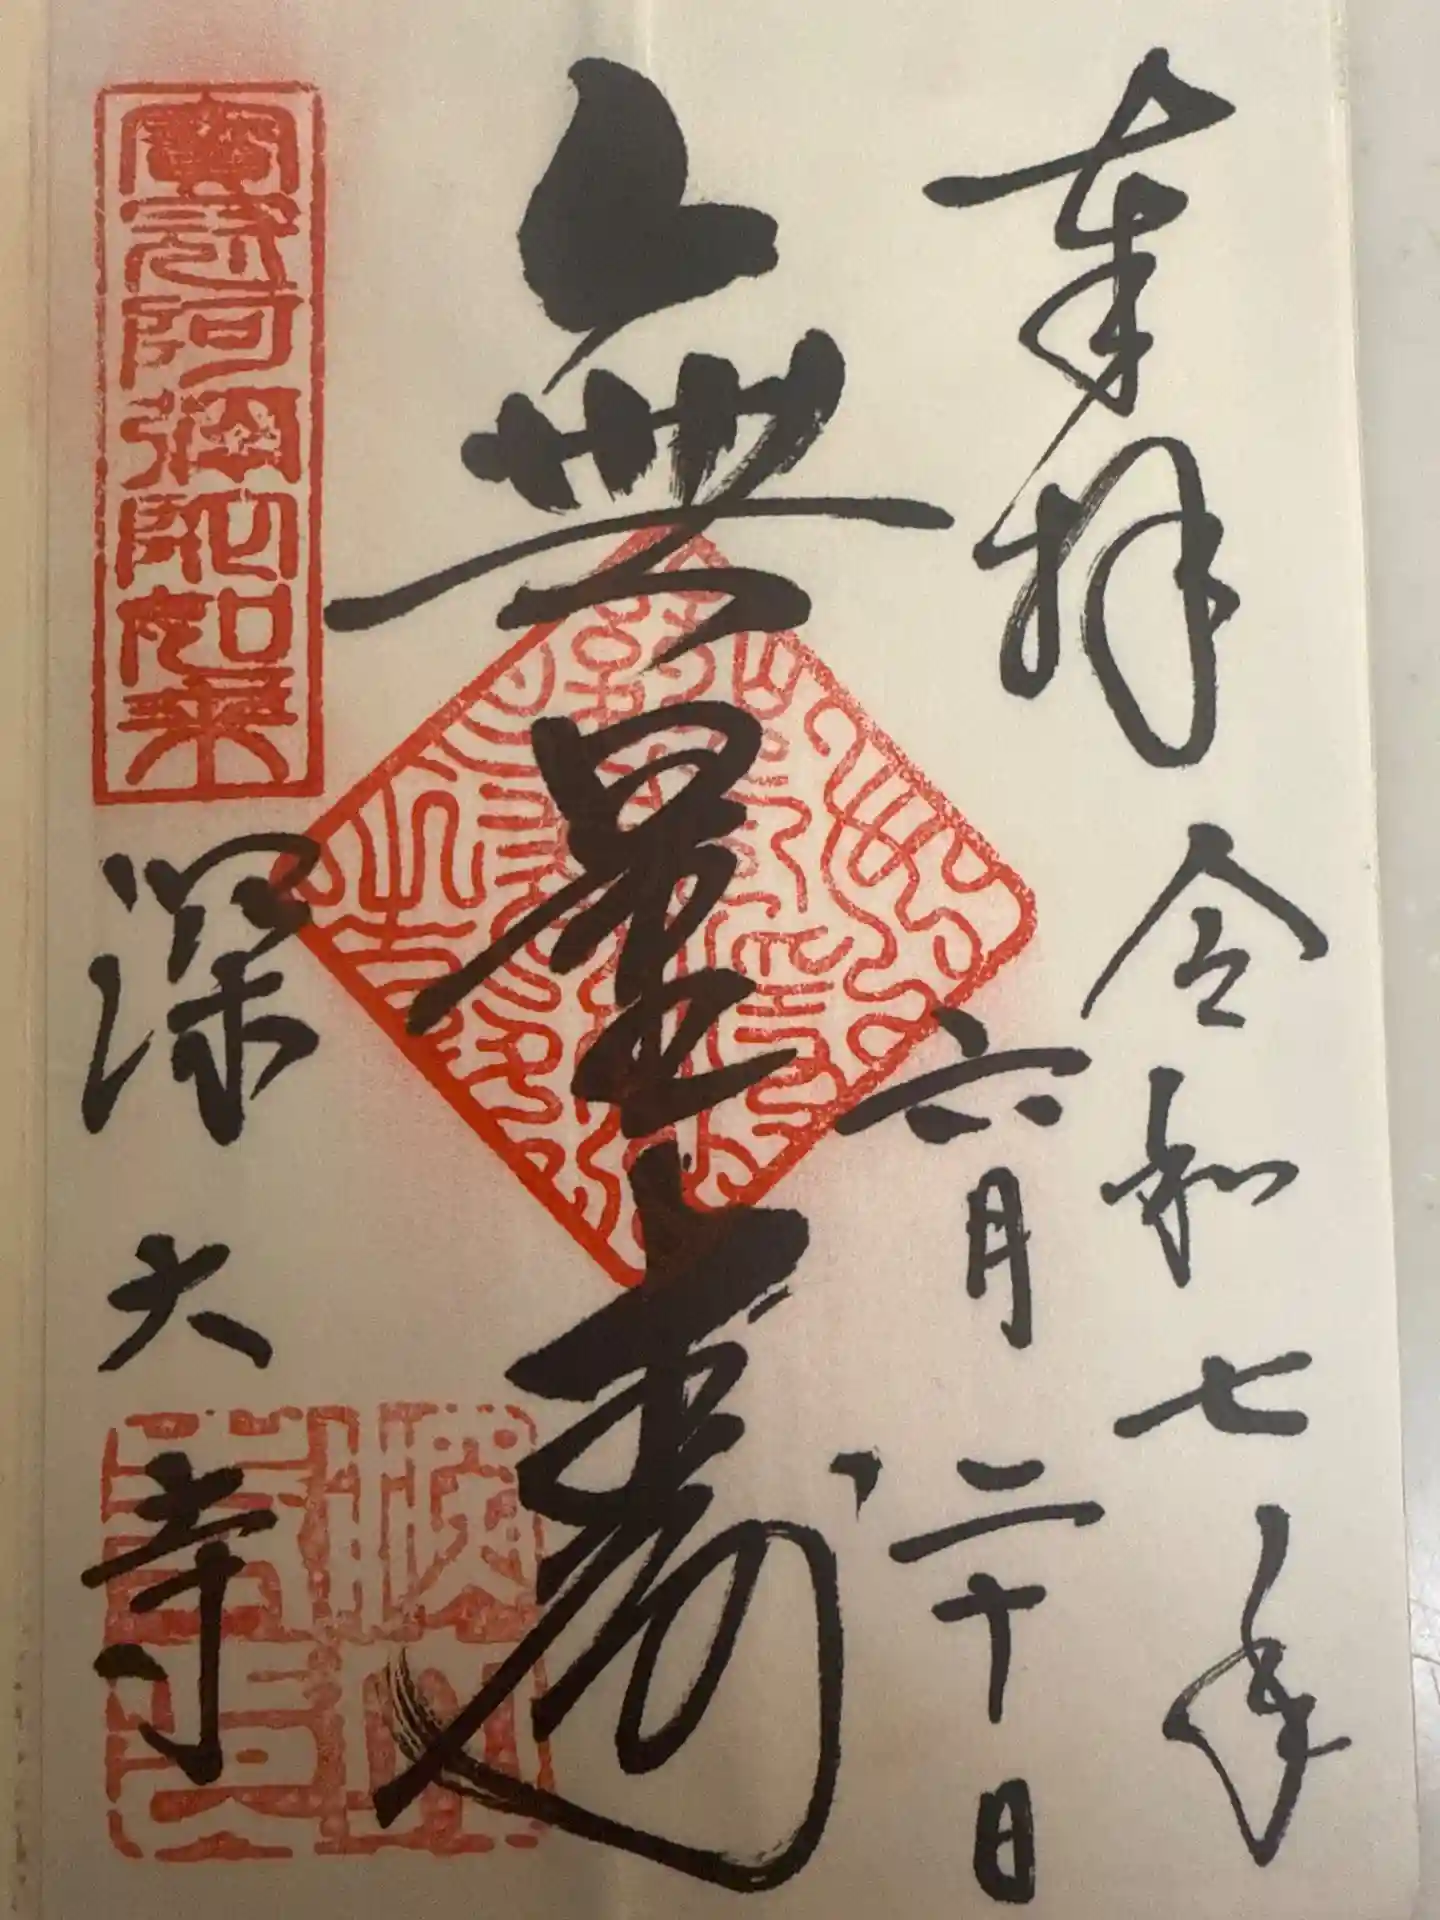 奉拝
令和七年
六月二十日
無量寿
寳冠阿彌陀如来
深大寺